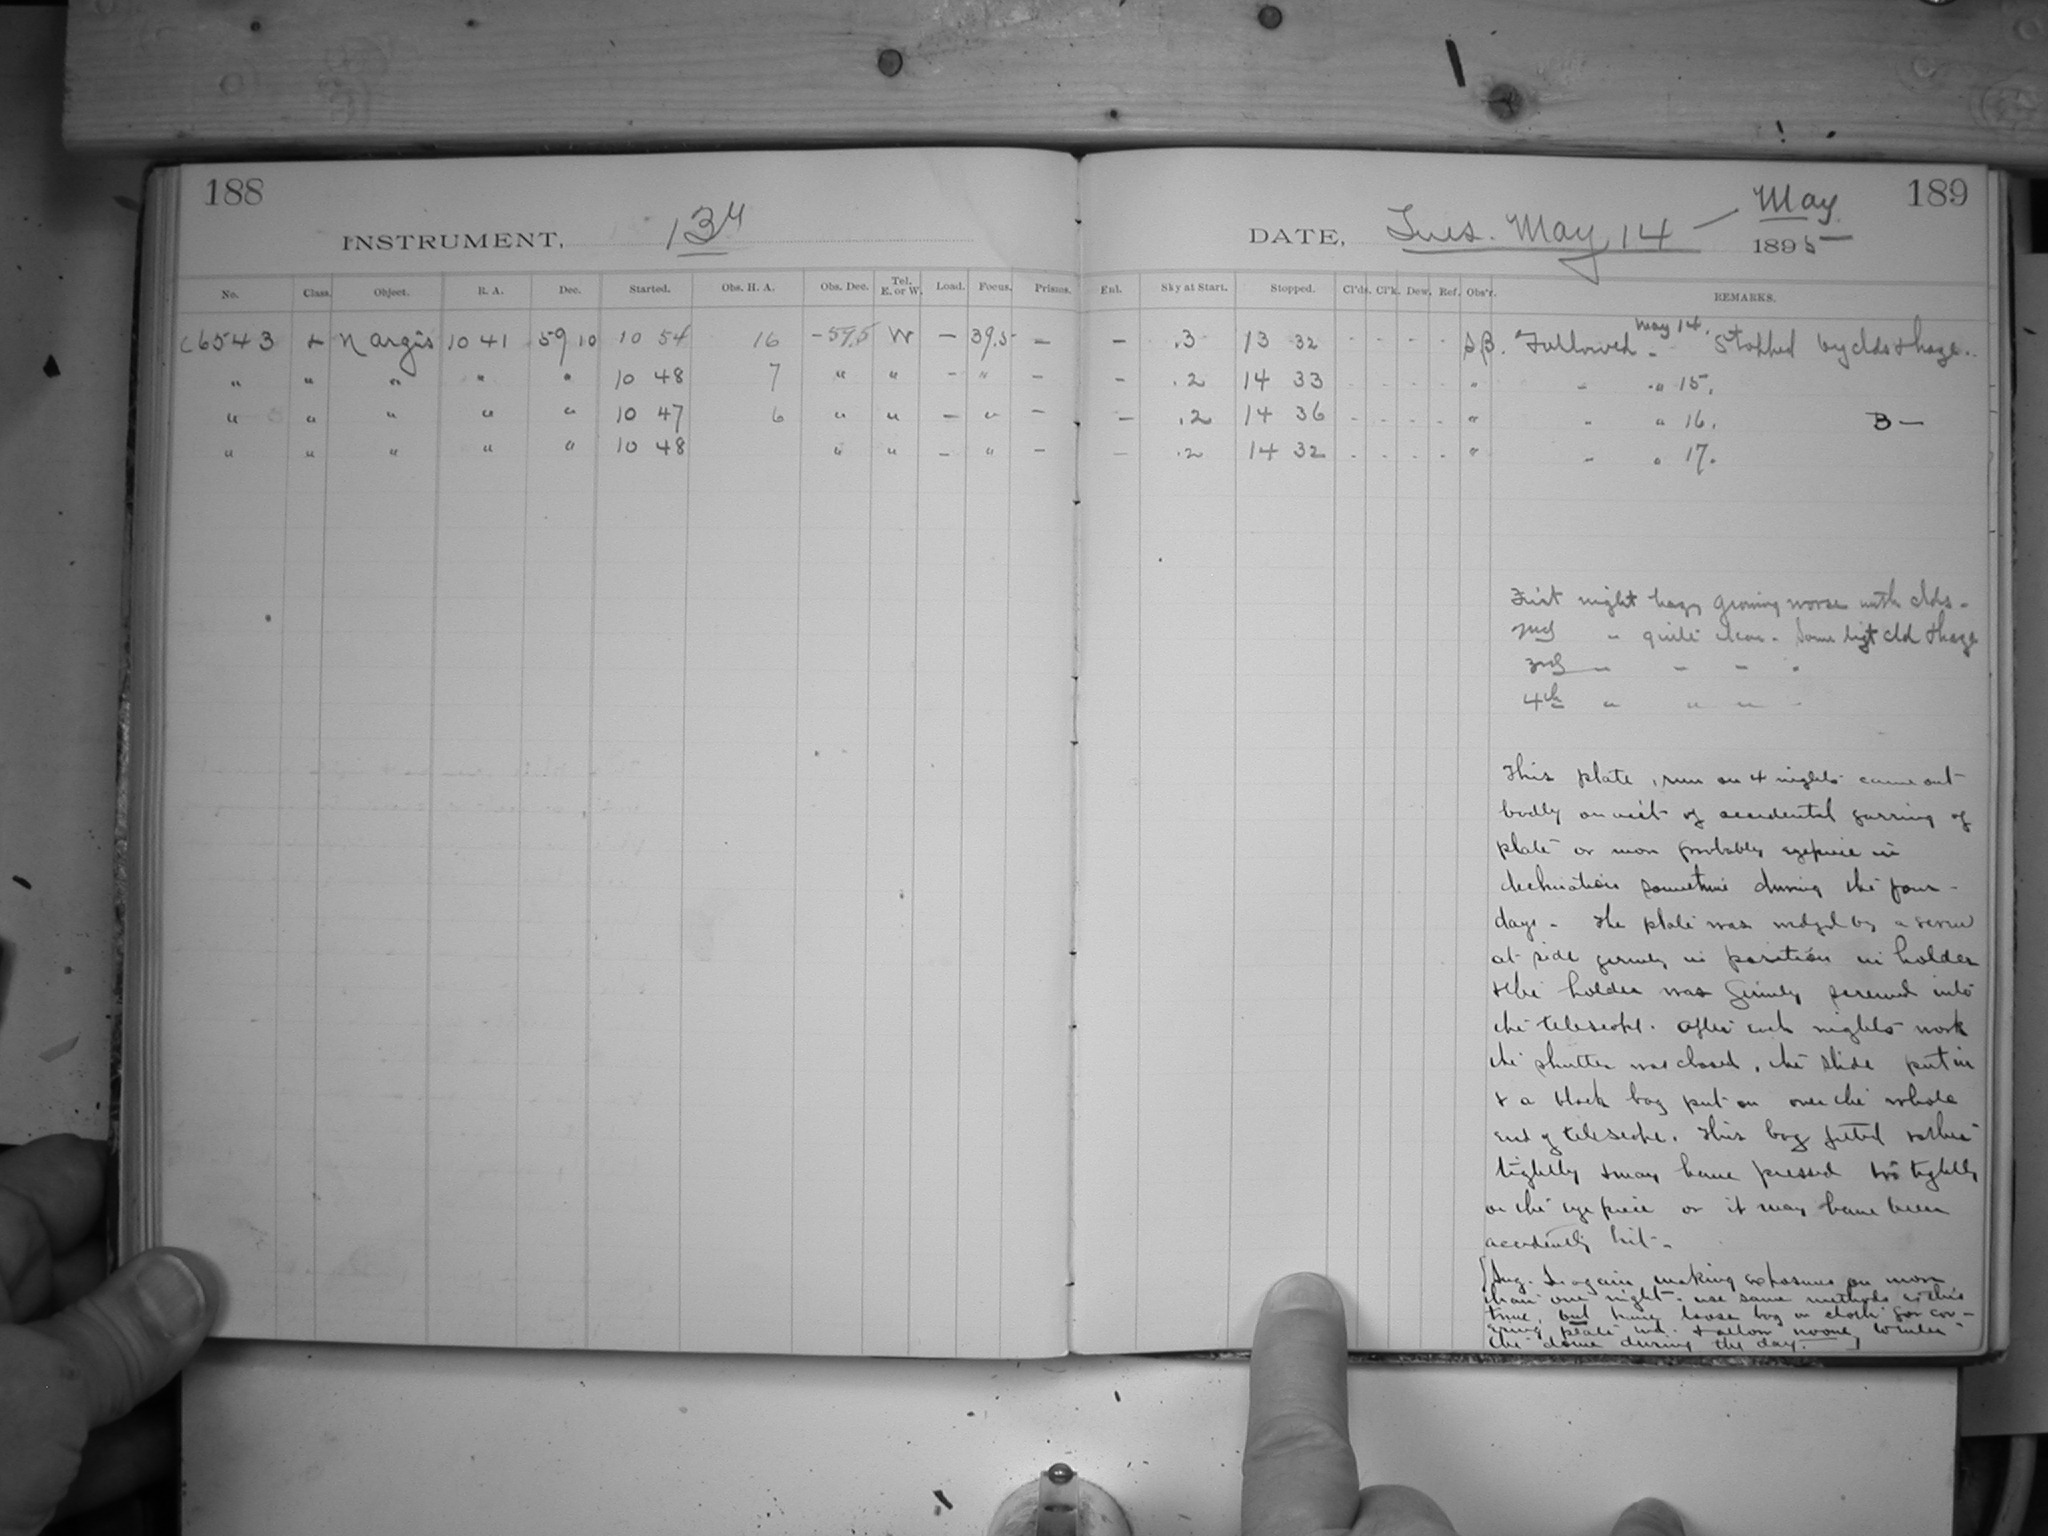 188
INSTRUMENT, 13"
No. Class. Object. R. A. Dec. Started. Obs. H. A. Obs. Dec. Tel. E. or W. Load. Focus. Prisms.
C6543 L N argûs 10 41 59 10 10 54 16 -59.5 W - 39.5 -
" " " " " 10 48 7 " " - " -
" " " " " 10 47 6 " " - " -
" " " " " 10 48 " " - " -
189
DATE, Tues. May 14 - May 1895
Enl. Sky at Start. Stopped. Cl'ds. Cl'k. Dew. Ref. Obs'r. REMARKS.
- .3 13 32 - - - - SB. Followed May 14. Stopped by clds & haze.
- .2 14 33 - - - - " " " 15.
- .2 14 36 - - - - " " " 16. B-
- .2 14 32 - - - - " " " 17.
First night hazy growing worse with clds -
2nd " quite clear - Some light cld & haze
3rd " " " "
4th " " " "
This plate, run on 4 nights came out
badly on acct of accidental jarring of
plate or more probably eyepiece in
declination sometime during the four
days - The plate was wedged by a screw
at side firmly in position in holder
& the holder was firmly screwed into
the telescope. After each nights work
the shutter was closed, the slide put in
& a black bag put on over the whole
end of telescope. This bag fitted rather
tightly & may have pressed too tightly
on the eyepiece or it may have been
accidently hit -
[Sug. In again making exposures on more
than one night - use same methods as this
time, but have loose bag or cloth for cov-
ering plate end. & allow no one, to enter
the dome during the day. - ]